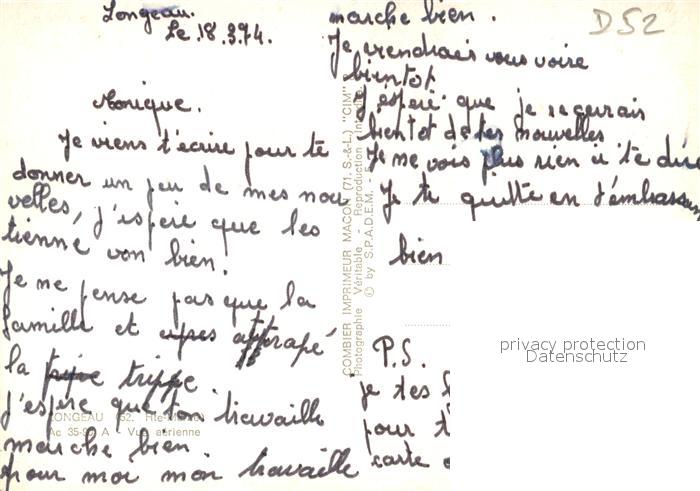 Longeau.
Le 18.3.74.
Monique.
Je viens t'ecrire pour te
donner un peu de mes nou
velles, j'espère que les
tienne von bien.
Je ne pense pas que la
famille et attrapé
la trippe.
j'espere que ton travaille
marche bien.
pour moi mon travaille
marche bien.
Je viendrais vous voire
bientot
J'espere que je reçevrais
bientot de tes nouvelles
Je ne vois plus rien a te dire
Je te quitte en t'embrassan
bien
P.S.
je tes
pour t
carte
D52
LONGEAU (52. Hte-Marne)
Ac 35-90 A - Vue aérienne
COMBIER IMPRIMEUR MACON (71. S.-&-L.) "CIM"
Photographie Véritable - Reproduction Interdite
© by S.P.A.D.E.M.
privacy protection
Datenschutz